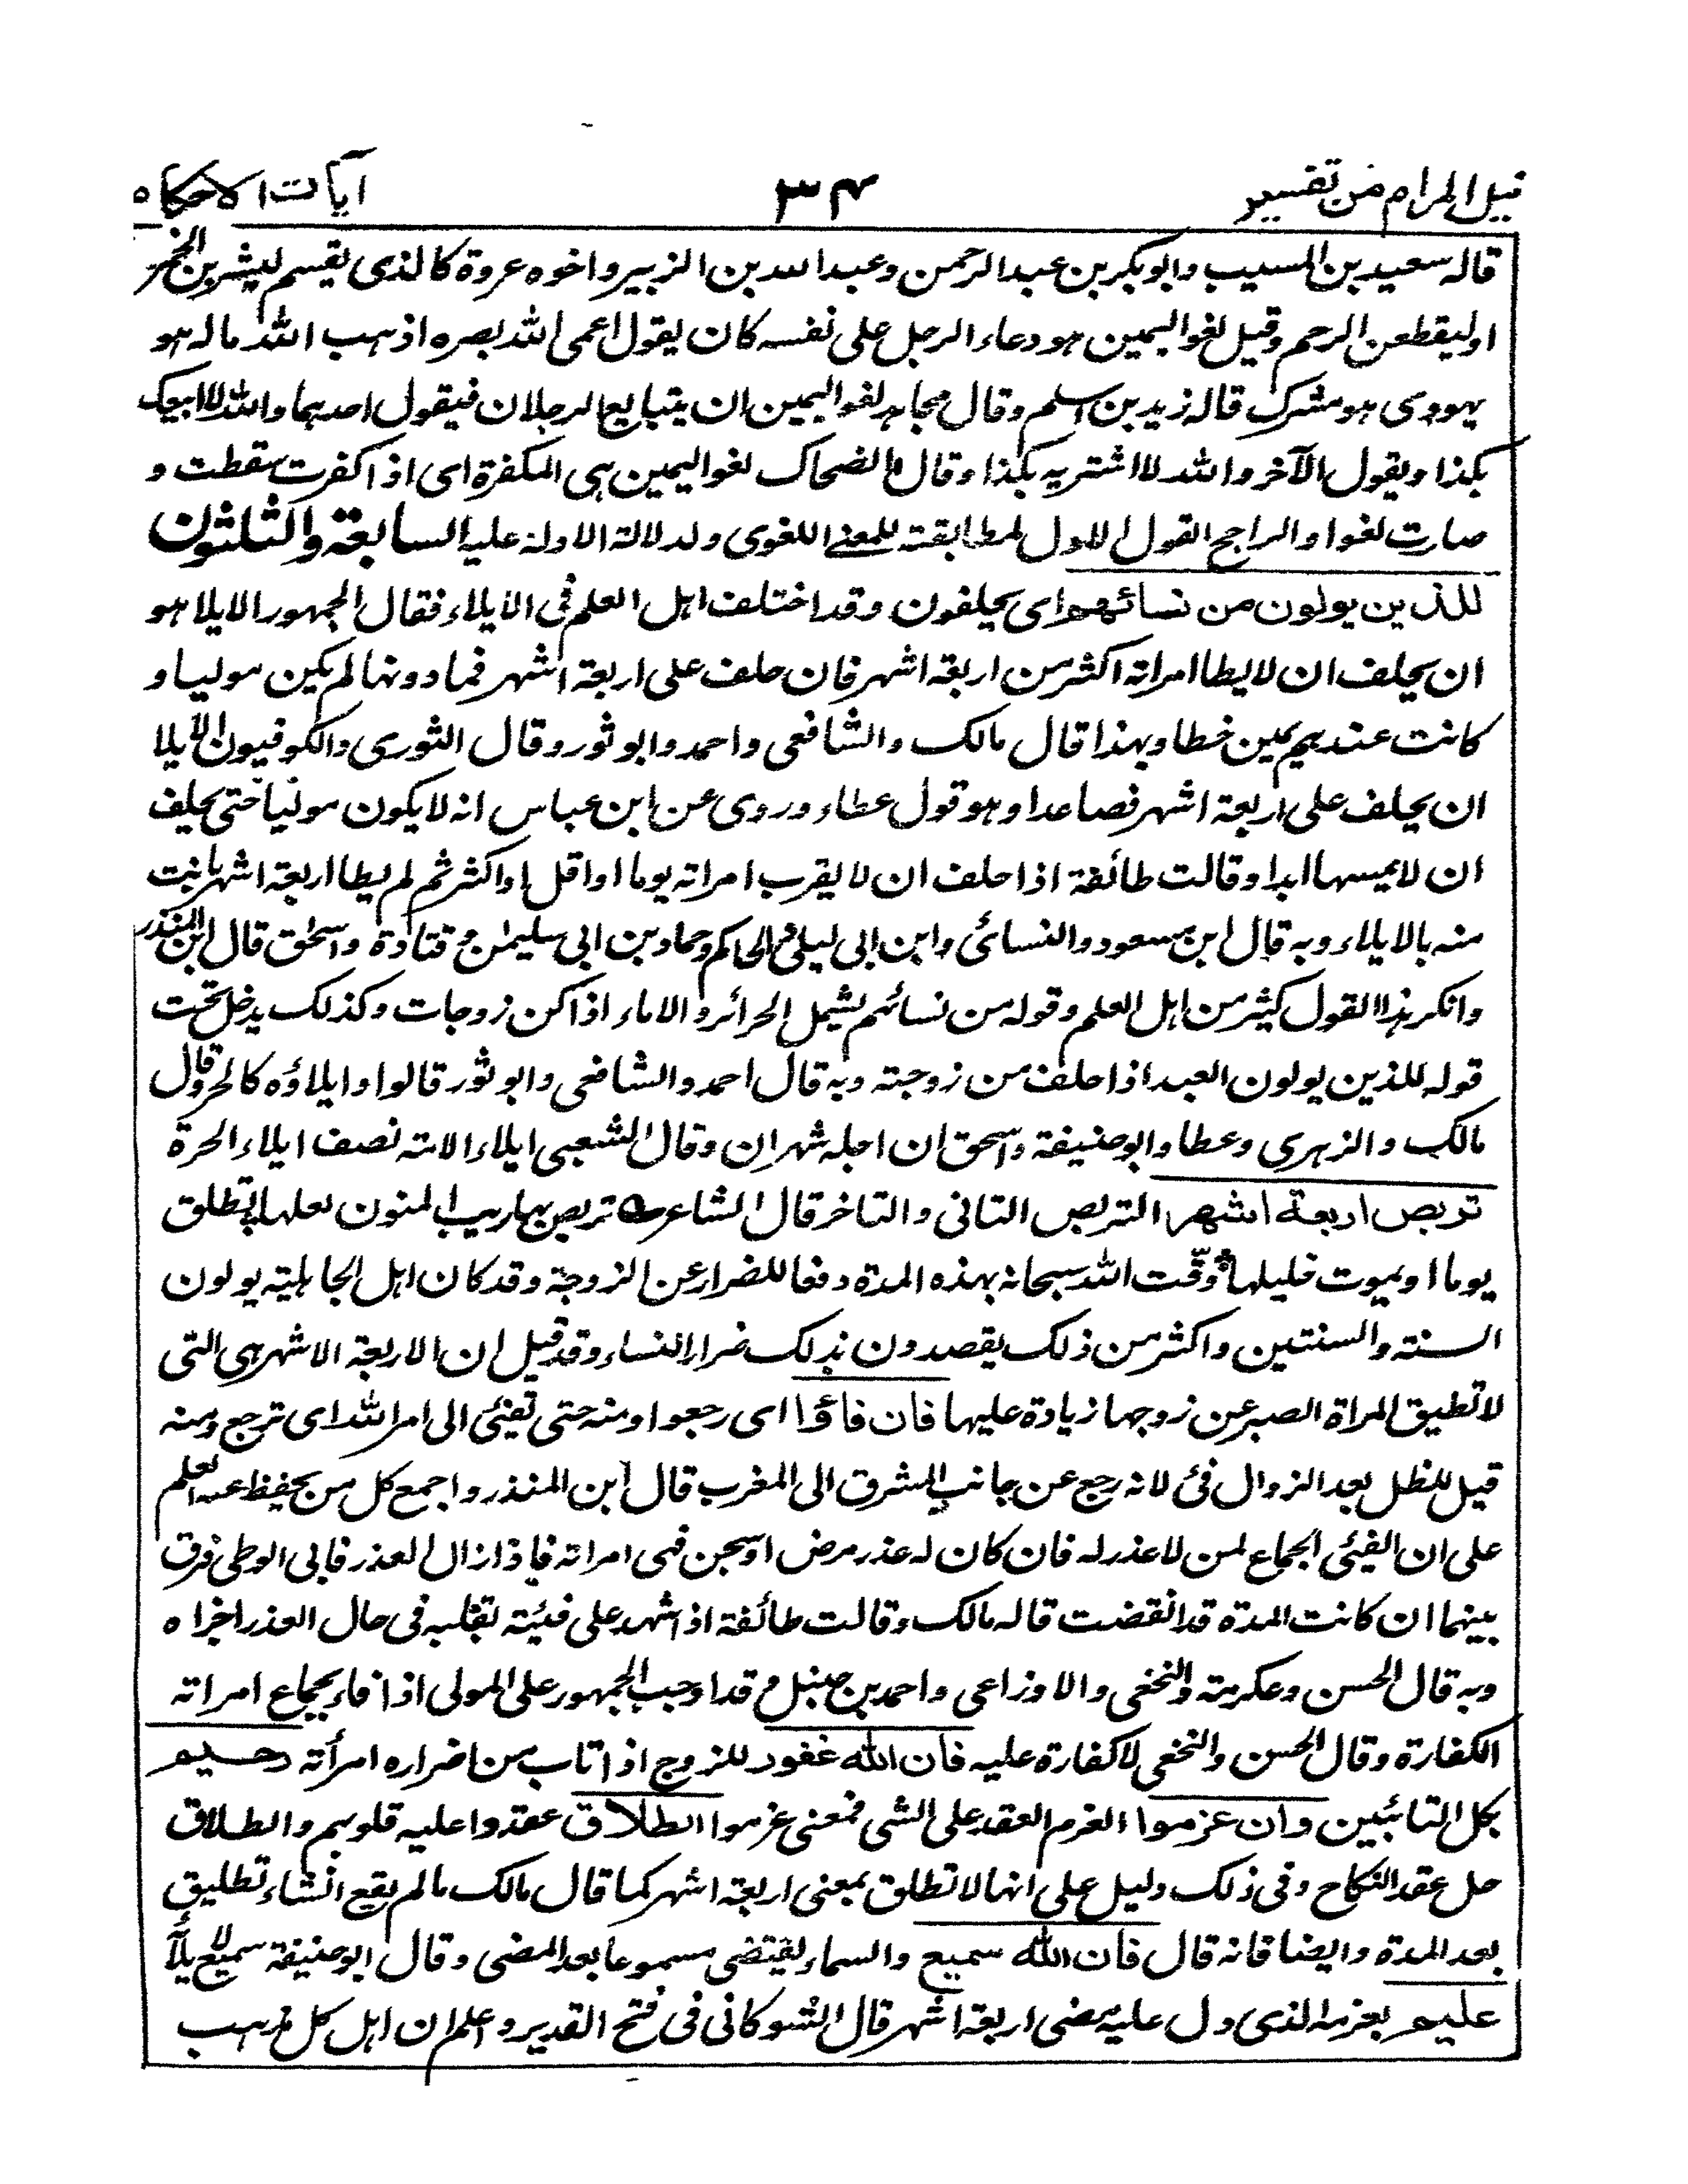 نيل المرام من تفسير
٣٤
آيات الاحكام
قاله سعيد بن المسيب وابو بكر بن عبد الرحمن وعبد الله بن الزبير واخوه عروة كالذى يقسم ليشربن الخمر
او ليقطعن الرحم وقيل لغو اليمين هو دعاء الرجل على نفسه كان يقول اعمى الله بصره اذهب الله ماله هو
يهودى هو مشرك قاله زيد بن اسلم وقال مجاهد لغو اليمين ان يتبايع الرجلان فيقول احدهما والله لا ابيعك
بكذا ويقول الآخر والله لا اشتريه بكذا وقال الضحاك لغو اليمين هى المكفرة اى اذا كفرت سقطت و
صارت لغوا والراجح القول الاول لمطابقته للمعنى اللغوى ولدلالة الادلة عليه السابعة والثلثون
للذين يولون من نسائهم اى يحلفون وقد اختلف اهل العلم فى الايلاء فقال الجمهور الايلا هو
ان يحلف ان لا يطا امراته اكثر من اربعة اشهر فان حلف على اربعة اشهر فما دونها لم يكن موليا و
كانت عندهم يمين خطا وبهذا قال مالك والشافعى واحمد وابو ثور وقال الثورى والكوفيون الايلا
ان يحلف على اربعة اشهر فصاعدا وهو قول عطاء وروى عن ابن عباس انه لا يكون موليا حتى يحلف
ان لا يمسها ابدا وقالت طائفة اذا حلف ان لا يقرب امراته يوما او اقل او اكثر ثم لم يطا اربعة اشهر بانت
منه بالايلاء وبه قال ابن مسعود والنسائى وابن ابى ليلى والحاكم وحماد بن ابى سليمن وقتادة واسحق قال ابن المنذر
وانكر هذا القول كثير من اهل العلم وقوله من نسائهم يشمل الحرائر والاماء اذا كن زوجات وكذلك يدخل تحت
قوله للذين يولون العبد اذا حلف من زوجته وبه قال احمد والشافعى وابو ثور قالوا وايلاؤه كالحر وقال
مالك والزهرى وعطا وابو حنيفة واسحق ان اجله شهران وقال الشعبى ايلاء الامة نصف ايلاء الحرة
تربص اربعة اشهر التربص التانى والتاخر قال الشاعر تربص بها ريب المنون لعلها تطلق
يوما او يموت حليلها وقت الله سبحانه بهذه المدة دفعا للضرار عن الزوجة وقد كان اهل الجاهلية يولون
السنة والسنتين واكثر من ذلك يقصدون بذلك ضرار النساء وقد قيل ان الاربعة الاشهر هى التى
لا تطيق المراة الصبر عن زوجها زيادة عليها فان فاؤا اى رجعوا ومنه حتى تفئ الى امر الله اى ترجع ومنه
قيل للظل بعد الزوال فئ لانه رجع عن جانب المشرق الى المغرب قال ابن المنذر واجمع كل من يحفظ عنه العلم
على ان الفيئ الجماع لمن لا عذر له فان كان له عذر مرض او سجن فهى امراته فاذا زال العذر فابى الوطى فرق
بينهما ان كانت المدة قد انقضت قاله مالك وقالت طائفة اذا شهد على فيئه بقلبه فى حال العذر اجزاه
وبه قال الحسن وعكرمة والنخعى والاوزاعى واحمد بن حنبل وقد اوجب الجمهور على المولى اذا فاء بجماع امراته
الكفارة وقال الحسن والنخعى لا كفارة عليه فان الله غفور للزوج اذا تاب من اضراره امرأته رحيم
بكل التائبين وان عزموا العزم العقد على الشى فمعنى عزموا الطلاق عقدوا عليه قلوبهم والطلاق
حل عقد النكاح وفى ذلك دليل على انها لا تطلق بمعنى اربعة اشهر كما قال مالك ما لم يقع انشاء تطليق
بعد المدة وايضا فانه قال فان الله سميع والسماء يقتضى مسموعا بعد المضى وقال ابو حنيفة سميع لايلآئه
عليم بعزمه الذى دل عليه مضى اربعة اشهر قال الشوكانى فى فتح القدير واعلم ان اهل كل مذهب